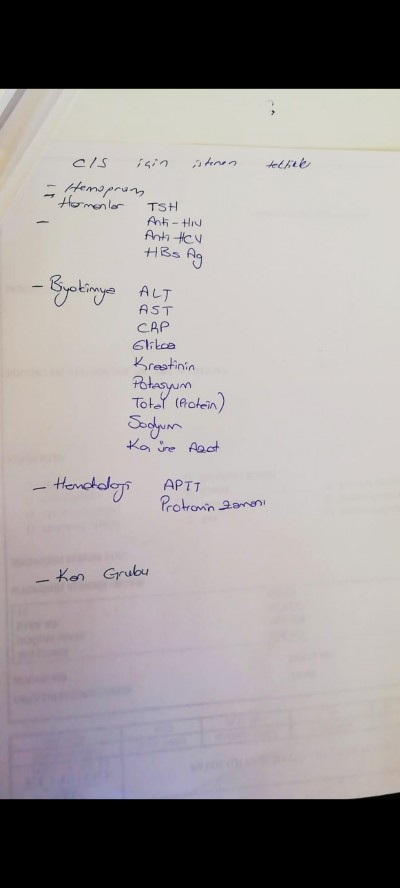 C/S için istenen tetkikler
- Hemogram
- Hormonlar TSH
- Anti-HIV
Anti-HCV
HBs Ag
- Biyokimya ALT
AST
CRP
Glikoz
Kreatinin
Potasyum
Total (Protein)
Sodyum
Kan üre Azot
- Hematoloji APTT
Protrombin zamanı
- Kan Grubu